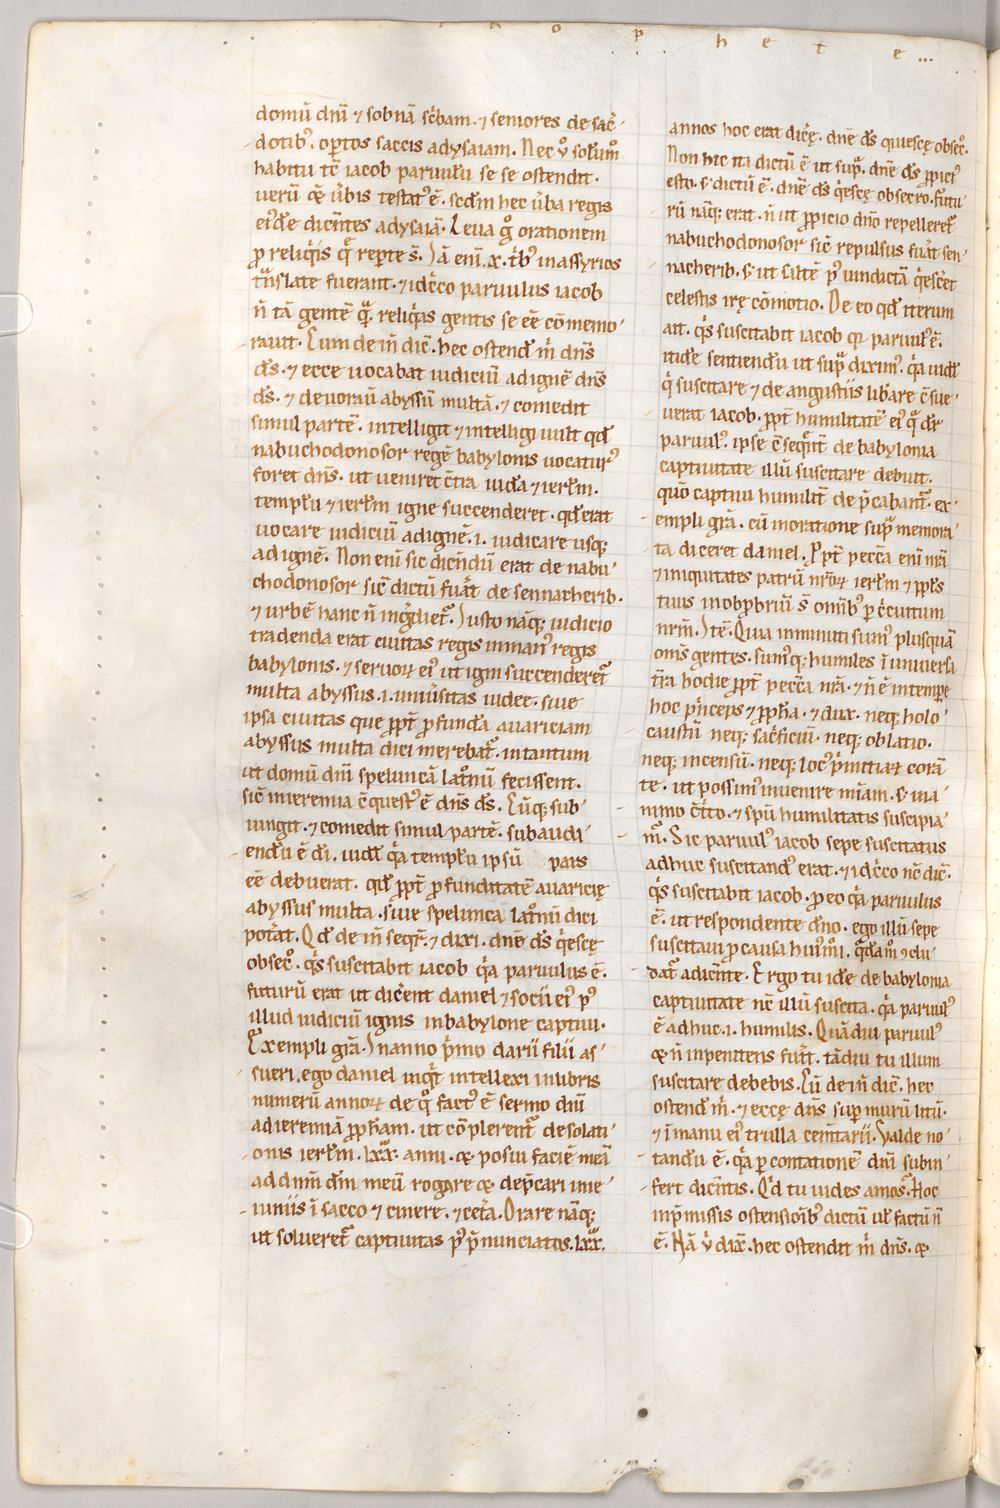 p h e t e ...
domū dnī ⁊ sobnā sc̄bam. ⁊ seniores de sac̄
dotib᷒. op̄tos saccis ad ysaiam. Nec ỷ solum̄
habitu tē iacob paruulū se se ostendit.
uerū ⁊ ủbis testat᷒ ē. scđm hec ủba regis
ei᷒dē dicn̄tes ad ysaiā. Leua g̊ orationem
ꝓ reliq̇is q̄ repte s̄. Jā enī .x. tb᷒ in assyrios
tͣnslate fuerant. ⁊ idc̊co paruulus iacob
n̄ tā gentē qͣ reliq̇as gentis se eē cōmemo
rauit. Cum dein̄ dic̄. hec ostend̄ m̄ dn̄s
đs. ⁊ ecce uocabat iudiciū ad ignē dn̄s
đs. ⁊ deuorau̅ abyssū multā. ⁊ comedit
simul partē. intelligit ⁊ intelligi uult qđ
nabuchodonosor regē babylonis uocatur᷒
foret dn̄s. ut ueniret c̄tra iudā ⁊ ierl̄m.
templū ⁊ ierl̄m igne succenderet. qđ erat
uocare iudiciū ad ignē .i. iudicare usq;
ad ignē. Non enī sic dicn̄dū erat de nabu
chodonosor sic̄ dictū fuāt de sennacherib.
⁊ urbē hanc n̄ ingdiet᷑. Justo nāq; iudicio
tradenda erat ciuitas regis in man᷒ regis
babylonis. ⁊ seruoꝝ ei᷒ ut igni succenderet᷑
multa abyssus .i. uniủsitas iudee. siue
ipsa ciuitas que ꝓpt̄ ꝓfundā auariciam
abyssus multa dici merebat᷑. in tantum
ut domū dnī speluncā lat̊nū fecissent.
sic̄ in ieremia c̄quest᷒ ē dn̄s đs. Cūq; sub
iungit. ⁊ comedit simul partē. subaudi
endū ē di. uidl̄ qͣ templū ipsū pars
eē debuerat. qđ ꝓpt̄ ꝓfunditatē auaricię
abyssus multa. siue spelunca lat̊nū dici
potāt. Qđ dein̄ seqr̄. ⁊ dixi. dn̄e đs q̇escę
obsec̊. q̇s suscitabit iacob qͣ paruulus ē.
futurū erat ut dicent daniel ⁊ socii ei᷒ p᷒
illud iudiciū ignis in babylone captiui.
Exempli grā. Jn anno ṗmo darii filii as
sueri. ego daniel inqͥt intellexi in libris
numerū annoꝝ de q̊ fact᷒ ē sermo dnī
ad ieremiā ꝓph̄am. ut cōplerent᷑ desolati
onis ierl̄m .lxx. anni. ⁊ posui faciē meā
ad dnm̄ đm meū rogare ⁊ dep̄cari in ie
iuniis ī sacco ⁊ cinere. ⁊ cet̄a. Orare nāq;
ut solueret᷑ captiuitas p᷒ p̄nunciatos .lxx.
annos hoc erat dic̄e. dn̄e đs quiescę obsec̊.
Non hic ita dictū ē ut supͣ. dn̄e đs ꝓpici᷒
esto. s; dictū ē. dn̄e đs q̇escę obsecro. futu
rū nāq; erat. n̄ ut ꝓpicio dn̄o repelleret᷑
nabuchodonosor sic̄ repulsus fuāt sen
nacherib. s; ut saltē p᷒ uindictā q̇esc̄et
celestis irę cōmotio. De eo qđ iterum
ait. q̇s suscitabit iacob qͣ paruul᷒ ē.
itidē sentiendū ut supͣ dixim᷒. qͣ uidl̄
q̇ suscitare ⁊ de angustiis libare c̄sue
uerat iacob. ꝓpt̄ humilitatē ei᷒ qͣ dr̄
paruul᷒. ipse c̄seqn̄t de babylonia
captiuitate illū suscitare debuit.
quō captiui humilit̄ dep̄cabant᷑. ex
empli grā. cū in oratione supͣ memora
ta diceret daniel. Ꝓpt̄ pecc̄a enī nrā
⁊ iniquitates patrū nr̄oꝝ ierl̄m ⁊ ppl̄s
tuus in obprobriū s̄ omīb᷒ per c̄cuitum
nrm̄. Jtē. Quia inminuti sum᷒ plusquā
om̄s gentes. sum᷒q; humiles ī uniuersa
t̄ra hodie ꝓpt̄ pecc̄a nrā. ⁊ n̄ ē in tempe
hoc ṗnceps ⁊ ꝓph̄a. ⁊ dux. neq; holo
caustū neq; sac̄ficiū. neq; oblatio.
neq; incensū. neq; loc᷒ ṗmitiaꝝ corā
te. ut possim᷒ inuenire mīam. s; in a
nimo c̄t̊to. ⁊ spū humilitatis suscipia
m᷒. Sic paruul᷒ iacob sepe suscitatus
adhuc suscitand᷒ erat. ⁊ idc̊co nc̄ dic̄.
q̇s suscitabit iacob. ꝓ eo qͣ paruulus
ē. ut respondente dn̄o. ego illū sepe
suscitaui ꝓ causa hum̄i. qđam̊ ꝯclu
dat᷑ a dicn̄te. Ergo tu idē de babylonia
captiuitate nc̄ illū suscita. qͣ paruul᷒
ē adhuc .i. humilis. Quādiu paruul᷒
⁊ n̄ inpenitens fuīt. tādiu tu illum
suscitare debebis. Cū dein̄ dic̄. hec
ostend̄ m̄. ⁊ eccę dn̄s sup murū litū.
⁊ ī manu ei᷒ trulla cem̄tarii. Valde no
tandū ē. qͣ per contationē dnī subin
fert dicn̄tis. Qͥd tu uides amos. Hoc
in p̄missis ostensioīb᷒ dictū ul̄ factū n̄
ē. Nā ỷ dix̄. hec ostendit m̄ dn̄s. ⁊